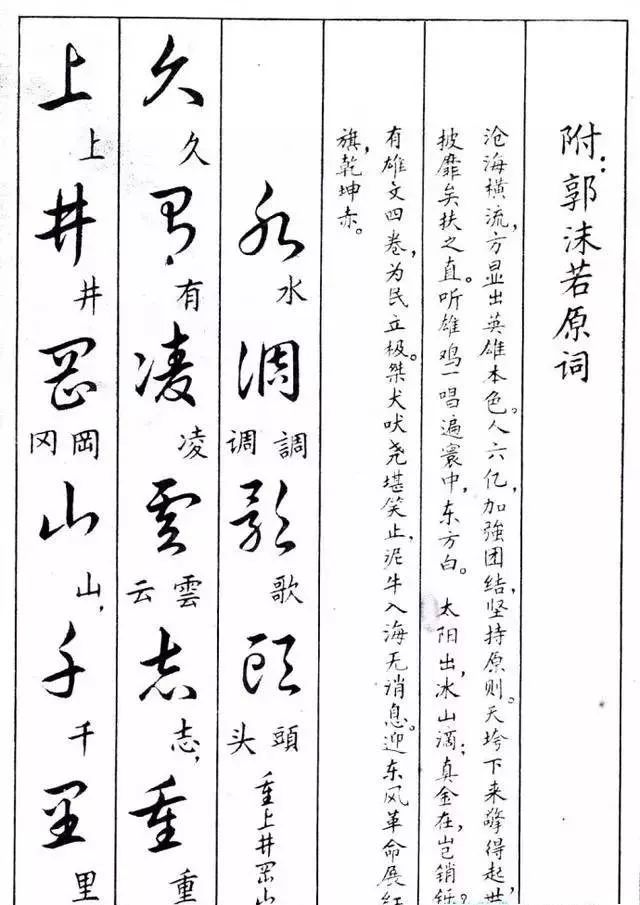 附:郭沫若原词
沧海横流,方显出英雄本色。人六亿,加強团结,坚持原则。天垮下来擎得起,世
披靡矣扶之直。听雄鸡一唱遍寰中,东方白。 太阳出,冰山滴;真金在,岂销
有雄文四卷,为民立极。桀犬吠尧堪笑止,泥牛入海无消息。迎东风革命展红
旗,乾坤赤。
水調歌頭
水 調 调 歌 頭 头 重上井岡山
久有凌雲志重
久 有 凌 雲 云 志, 重
上井岡山千里
上 井 岡 冈 山, 千 里